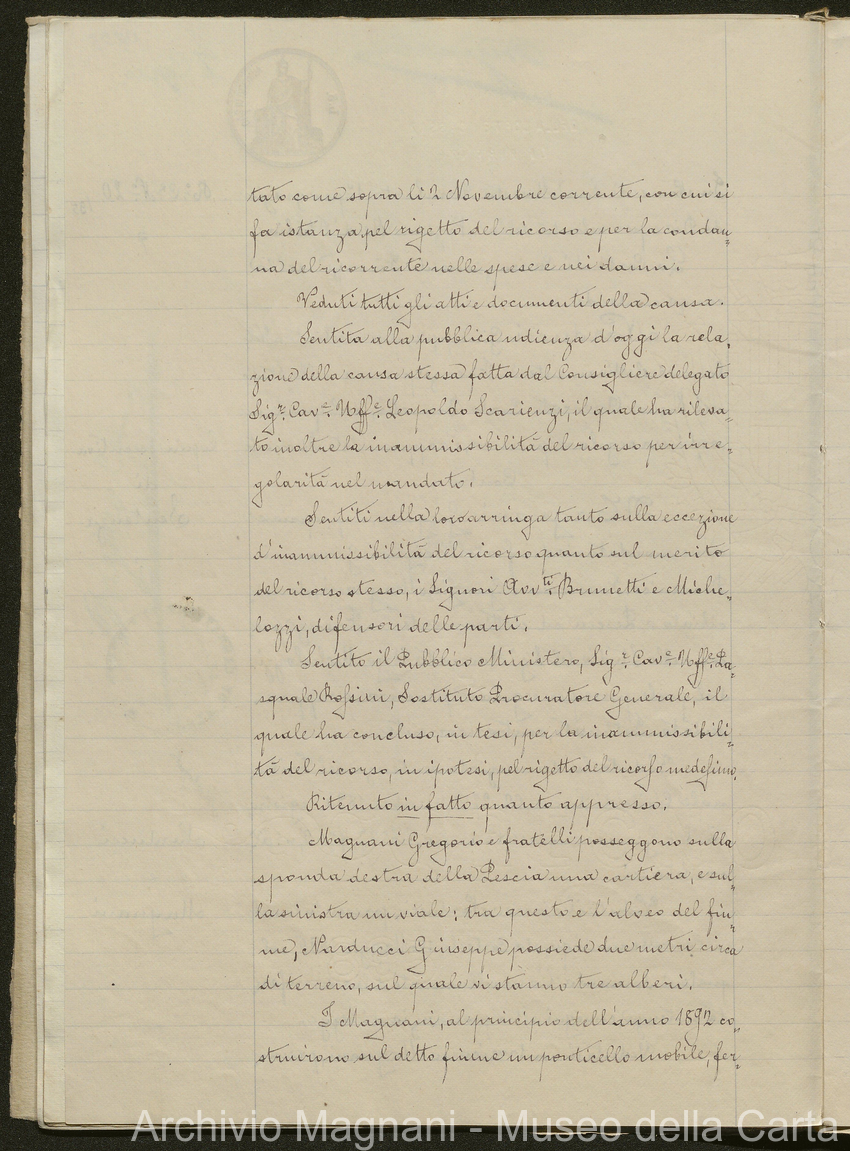 tato come sopra li 2 Novembre corrente, con cui si
fa istanza pel rigetto del ricorso e per la condan=
na del ricorrente nelle spese e nei danni.
Veduti tutti gli atti e documenti della causa.
Sentita alla pubblica udienza d'oggi la rela=
zione della causa stessa fatta dal Consigliere delegato
Sigr. Cave. Uffe. Leopoldo Scarienzi, il quale ha rileva=
to inoltre la inammissibilità del ricorso per irre=
golarità nel mandato.
Sentiti nella loro arringa tanto sulla eccezione
d'inammissibilità del ricorso quanto sul merito
del ricorso stesso, i Signori Avvti. Brunetti e Miche=
lozzi, difensori delle parti.
Sentito il Pubblico Ministero, Sigr. Cave. Uffe. Pa=
squale Rossini, Sostituto Procuratore Generale, il
quale ha concluso, in tesi, per la inammissibili=
tà del ricorso, in ipotesi, pel rigetto del ricorso medesimo.
Ritenuto in fatto quanto appresso.
Magnani Gregorio e fratelli posseggono sulla
sponda destra della Pescia una cartiera, e sul=
la sinistra un viale: tra questo e l'alveo del fiu=
me, Narducci Giuseppe possiede due metri circa
di terreno, sul quale vi stanno tre alberi.
I Magnani, al principio dell'anno 1892 co=
struirono sul detto fiume un ponticello mobile, fer=
Archivio Magnani - Museo della Carta